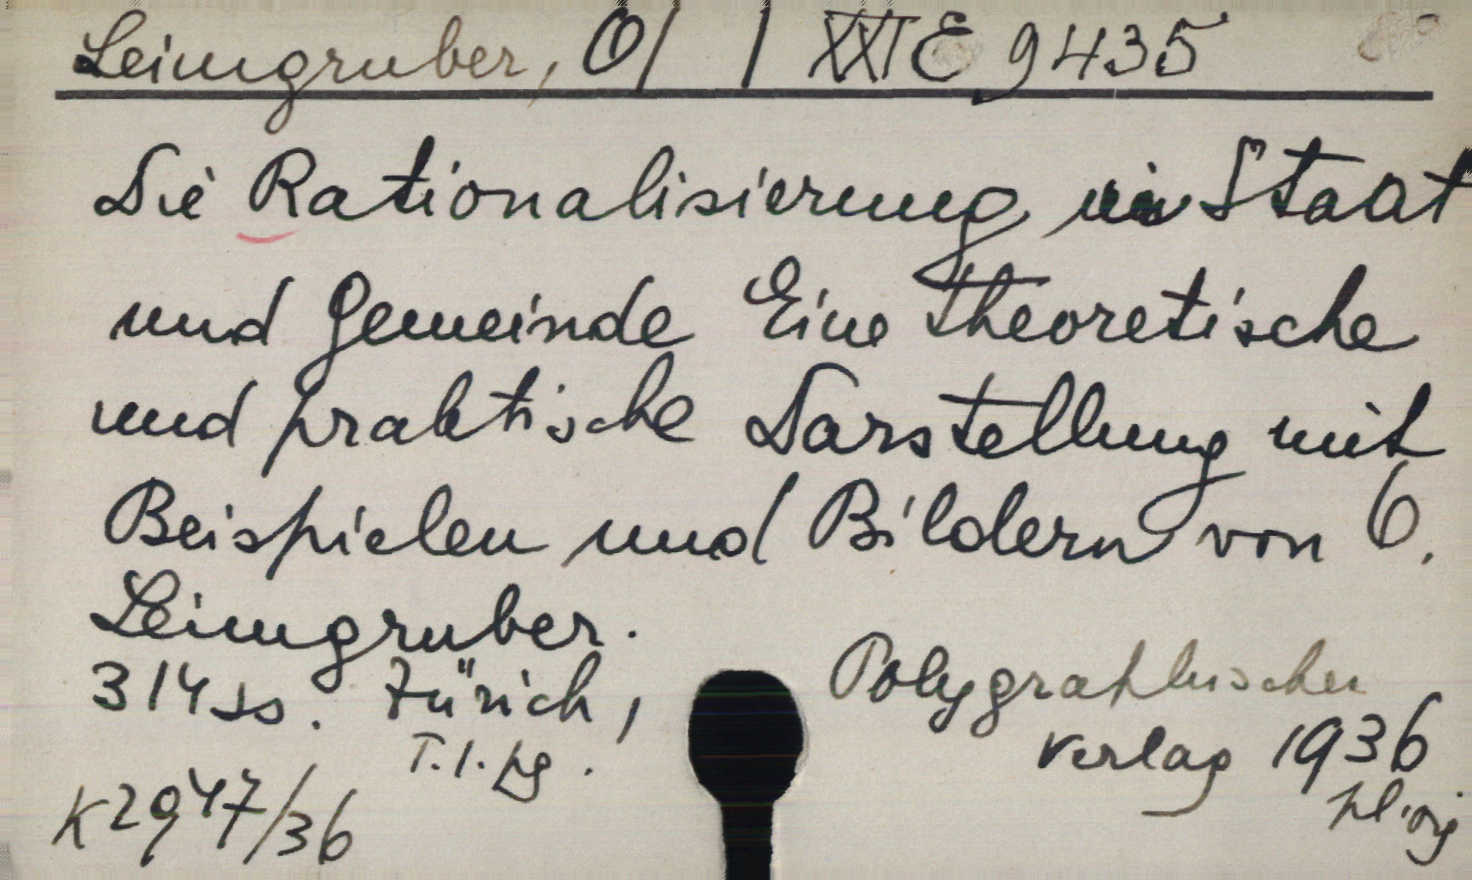 Leimgruber, O/ / XXI E 9435
Die Rationalisierung in Staat
und Gemeinde Eine theoretische
und praktische Darstellung mit
Beispielen und Bildern von O.
Leimgruber.
314 ss. Zürich, Polygraphischer
Verlag 1936
T.1.pg. pl.
K2947/36